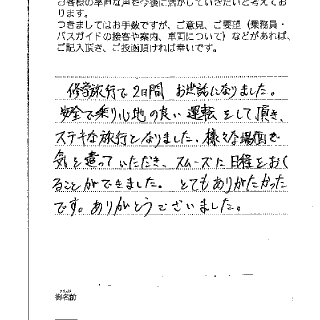 お客様の率直な声を今後に活かしていきたいと考えております。
つきましてはお手数ですが、ご意見、ご要望（乗務員・
バスガイドの接客や案内、車両について）などがあれば、
ご記入頂き、ご投函頂ければ幸いです。
修学旅行で2日間 お世話になりました。
安全で乗り心地の良い運転をして頂き、
ステキな旅行となりました。様々な場面で
気を遣っていただき、スムーズに日程をおく
ることができました。とてもありがたかった
です。ありがとうございました。
御名前